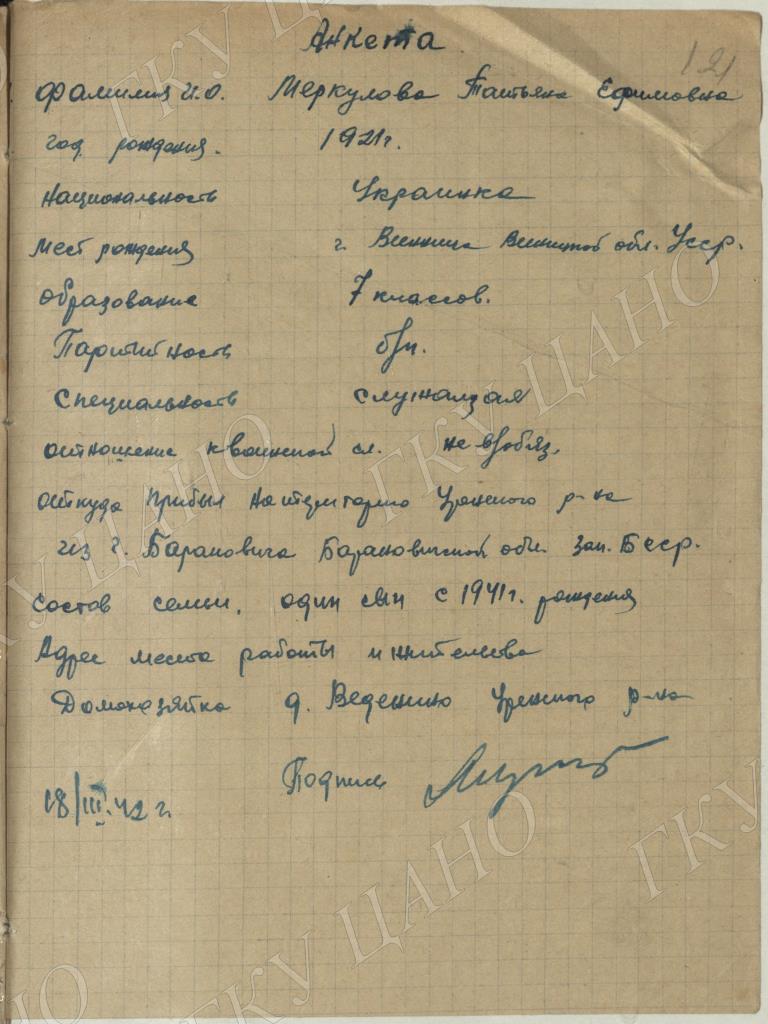 Анкета
121
Фамилия И.О. Меркулова Татьяна Ефимовна
год рождения. 1921 г.
Национальность Украинка
Мест рождения г. Винница Винницкой обл. Усср.
Образование 7 классов.
Партийность б/п.
Специальность служащая
отношение к воинской сл. не в/обяз.
откуда прибыл на територию Уренского р-на
из г. Барановича Барановичской обл. Зап. Бсср.
Состов семьи, один сын с 1941 г. рождения
Адрес места работы и жительства
Домохозяйка д. Веденино Уренского р-на
Подпись
18/III.42 г.
ГКУ ЦАНО